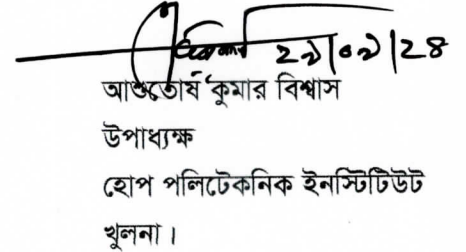 ২৯|০৯|২৪
আশুতোষ কুমার বিশ্বাস
উপাধ্যক্ষ
হোপ পলিটেকনিক ইনস্টিটিউট
খুলনা।